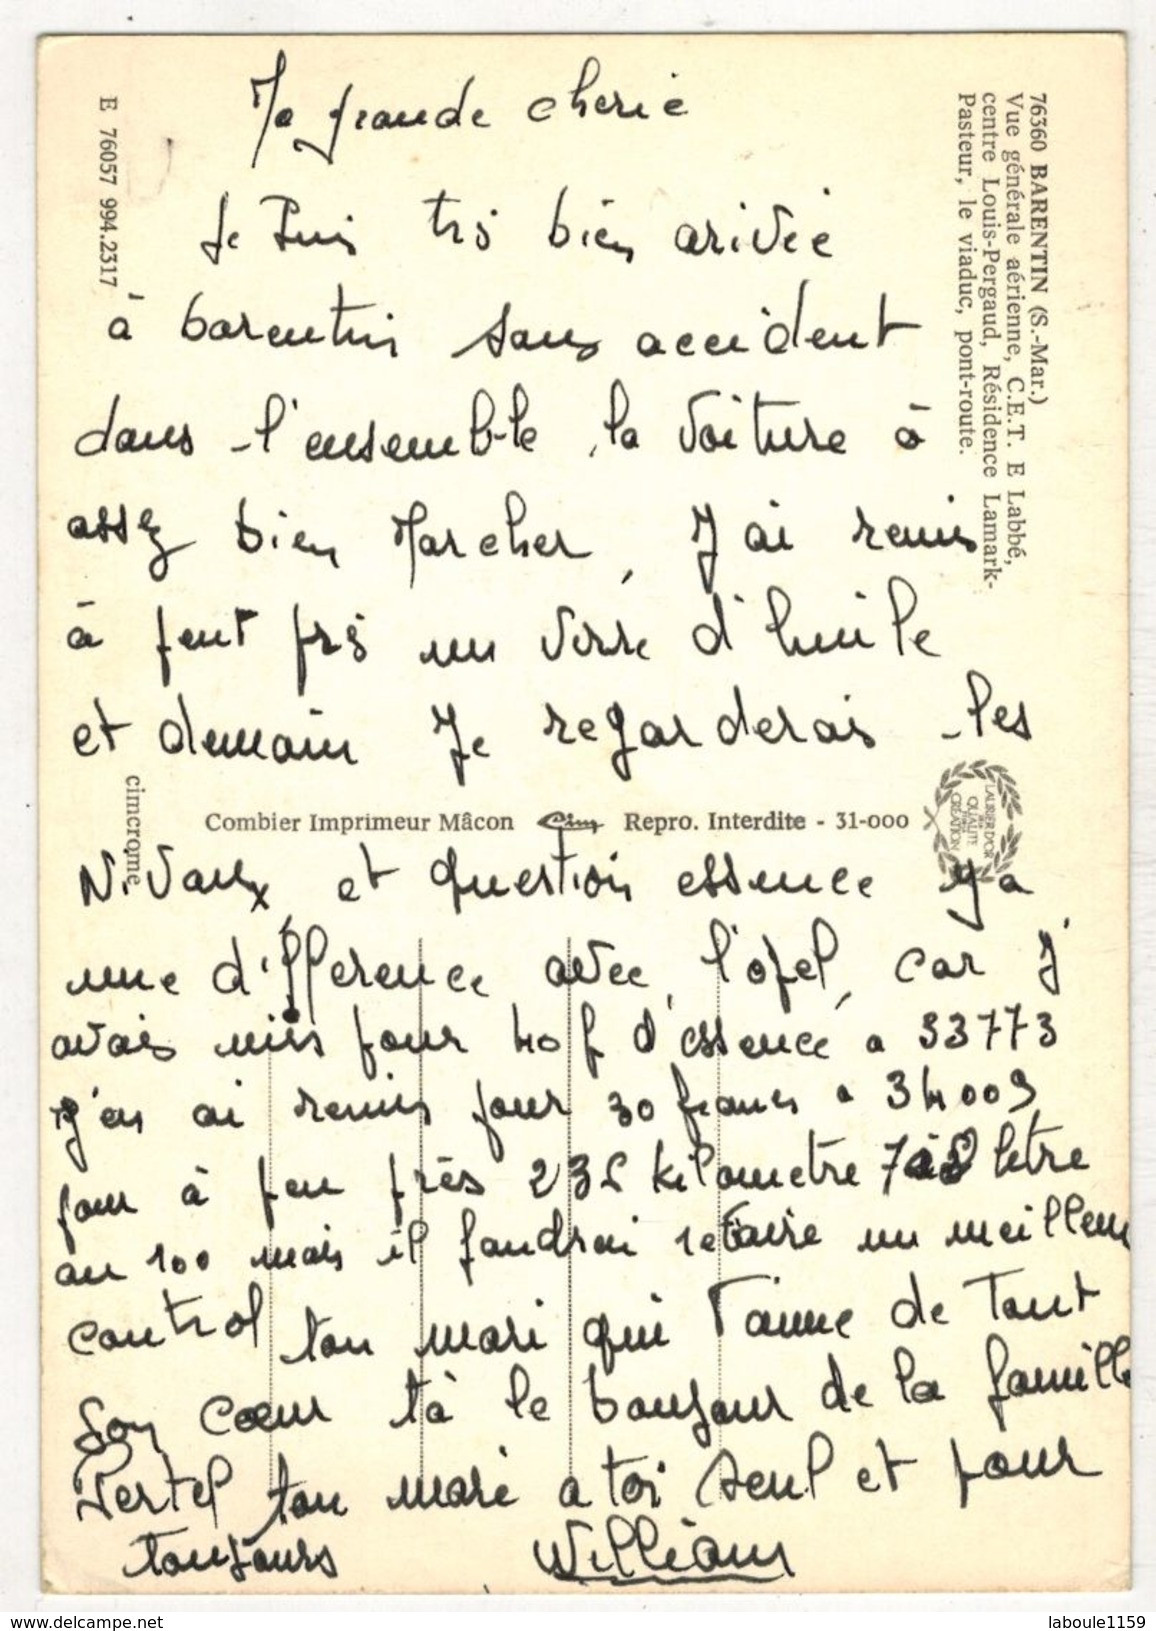 Ma grande cherie
Je suis trs bien arivée
à barentin sans accident
dans l'ensemble la voiture à
assez bien Marcher, J'ai remis
à peut prs un verre d'huile
et demain Je regarderais les
Nivaux et question essence y a
une d'ifference avec l'opel, car j'
avais mis pour 40 f d'essence a 33773
j'en ai remis pour 30 francs a 34009
pour à peu près 236 kilometre 7 à 8 letre
au 100 mais il faudrai refaire un meilleur
control ton mari qui t'aime de tout
son cœur tà le bonjour de la famille
Vertel ton mari a toi seul et pour
toujours William
76360 BARENTIN (S.-Mar.)
Vue générale aérienne, C.E.T. E Labbé,
centre Louis-Pergaud, Résidence Lamark-
Pasteur, le viaduc, pont-route.
E 76057 994.2317
cimcrome
Combier Imprimeur Mâcon Cim Repro. Interdite - 31-000
LAURIER D'OR
QUALITÉ
CRÉATION
https://www.delcampe.net
laboule1159